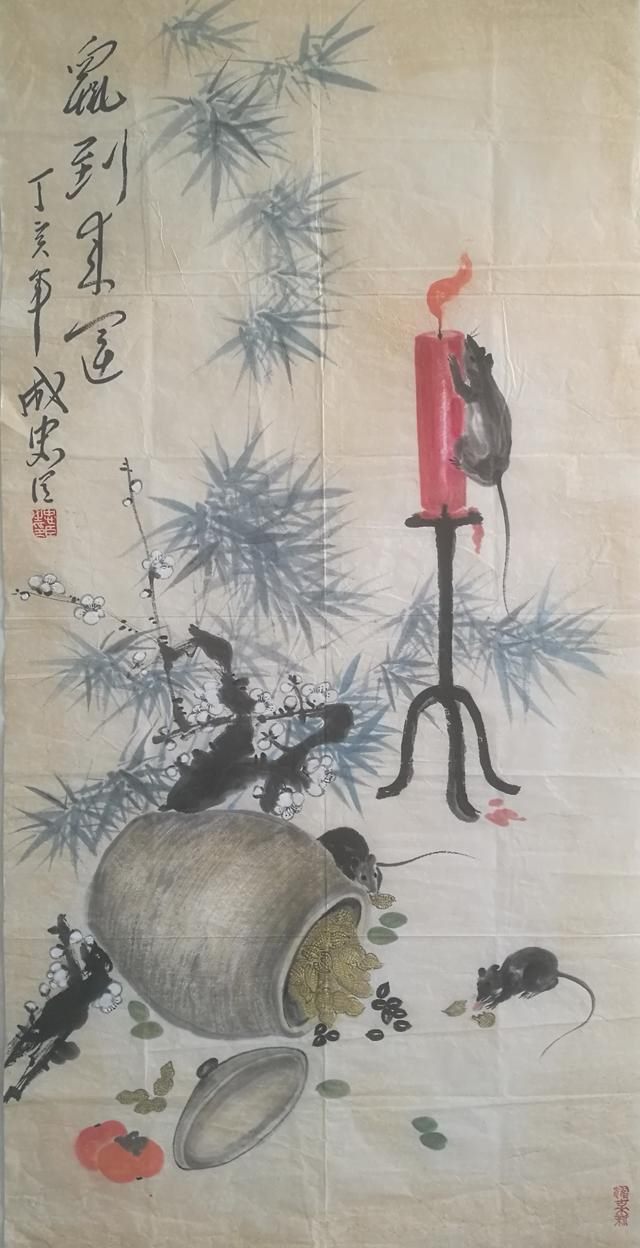 鼠到来运
丁亥年成忠写